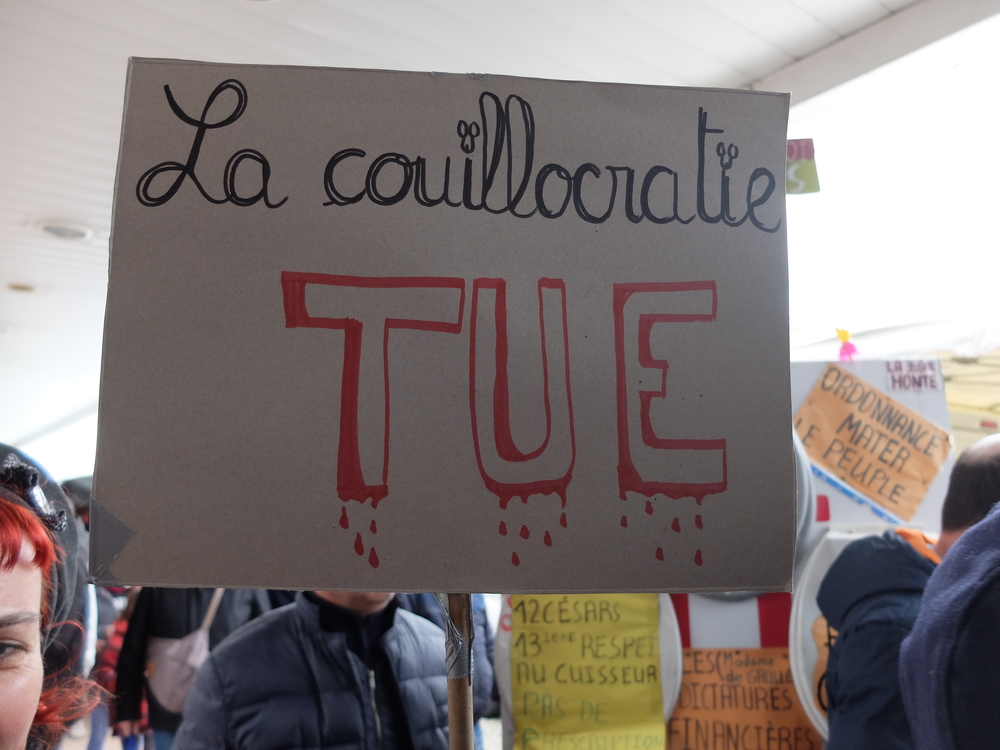 La couïllocratïe
TUE
S
LA
HONTE
ORDONNANCE
MATER
LE PEUPLE
12 CÉSARS
13ième RESPET
AU CUISSEUR
PAS DE
PRESCRIPTION
LES (Madame
de GAULLE
DICTATURES
FINANCIÈRES